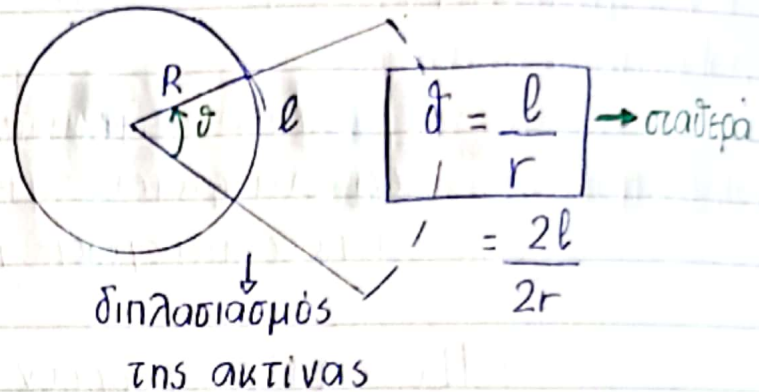 R
ϑ
l
ϑ = l/r → σταθερά
= 2l/2r
διπλασιασμός
της ακτίνας